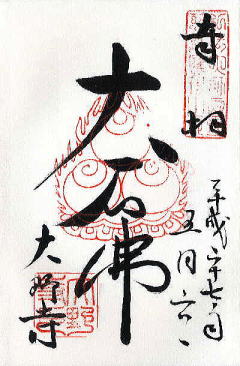 奉拝
平成二十七年
五月六日
大石佛
大野寺